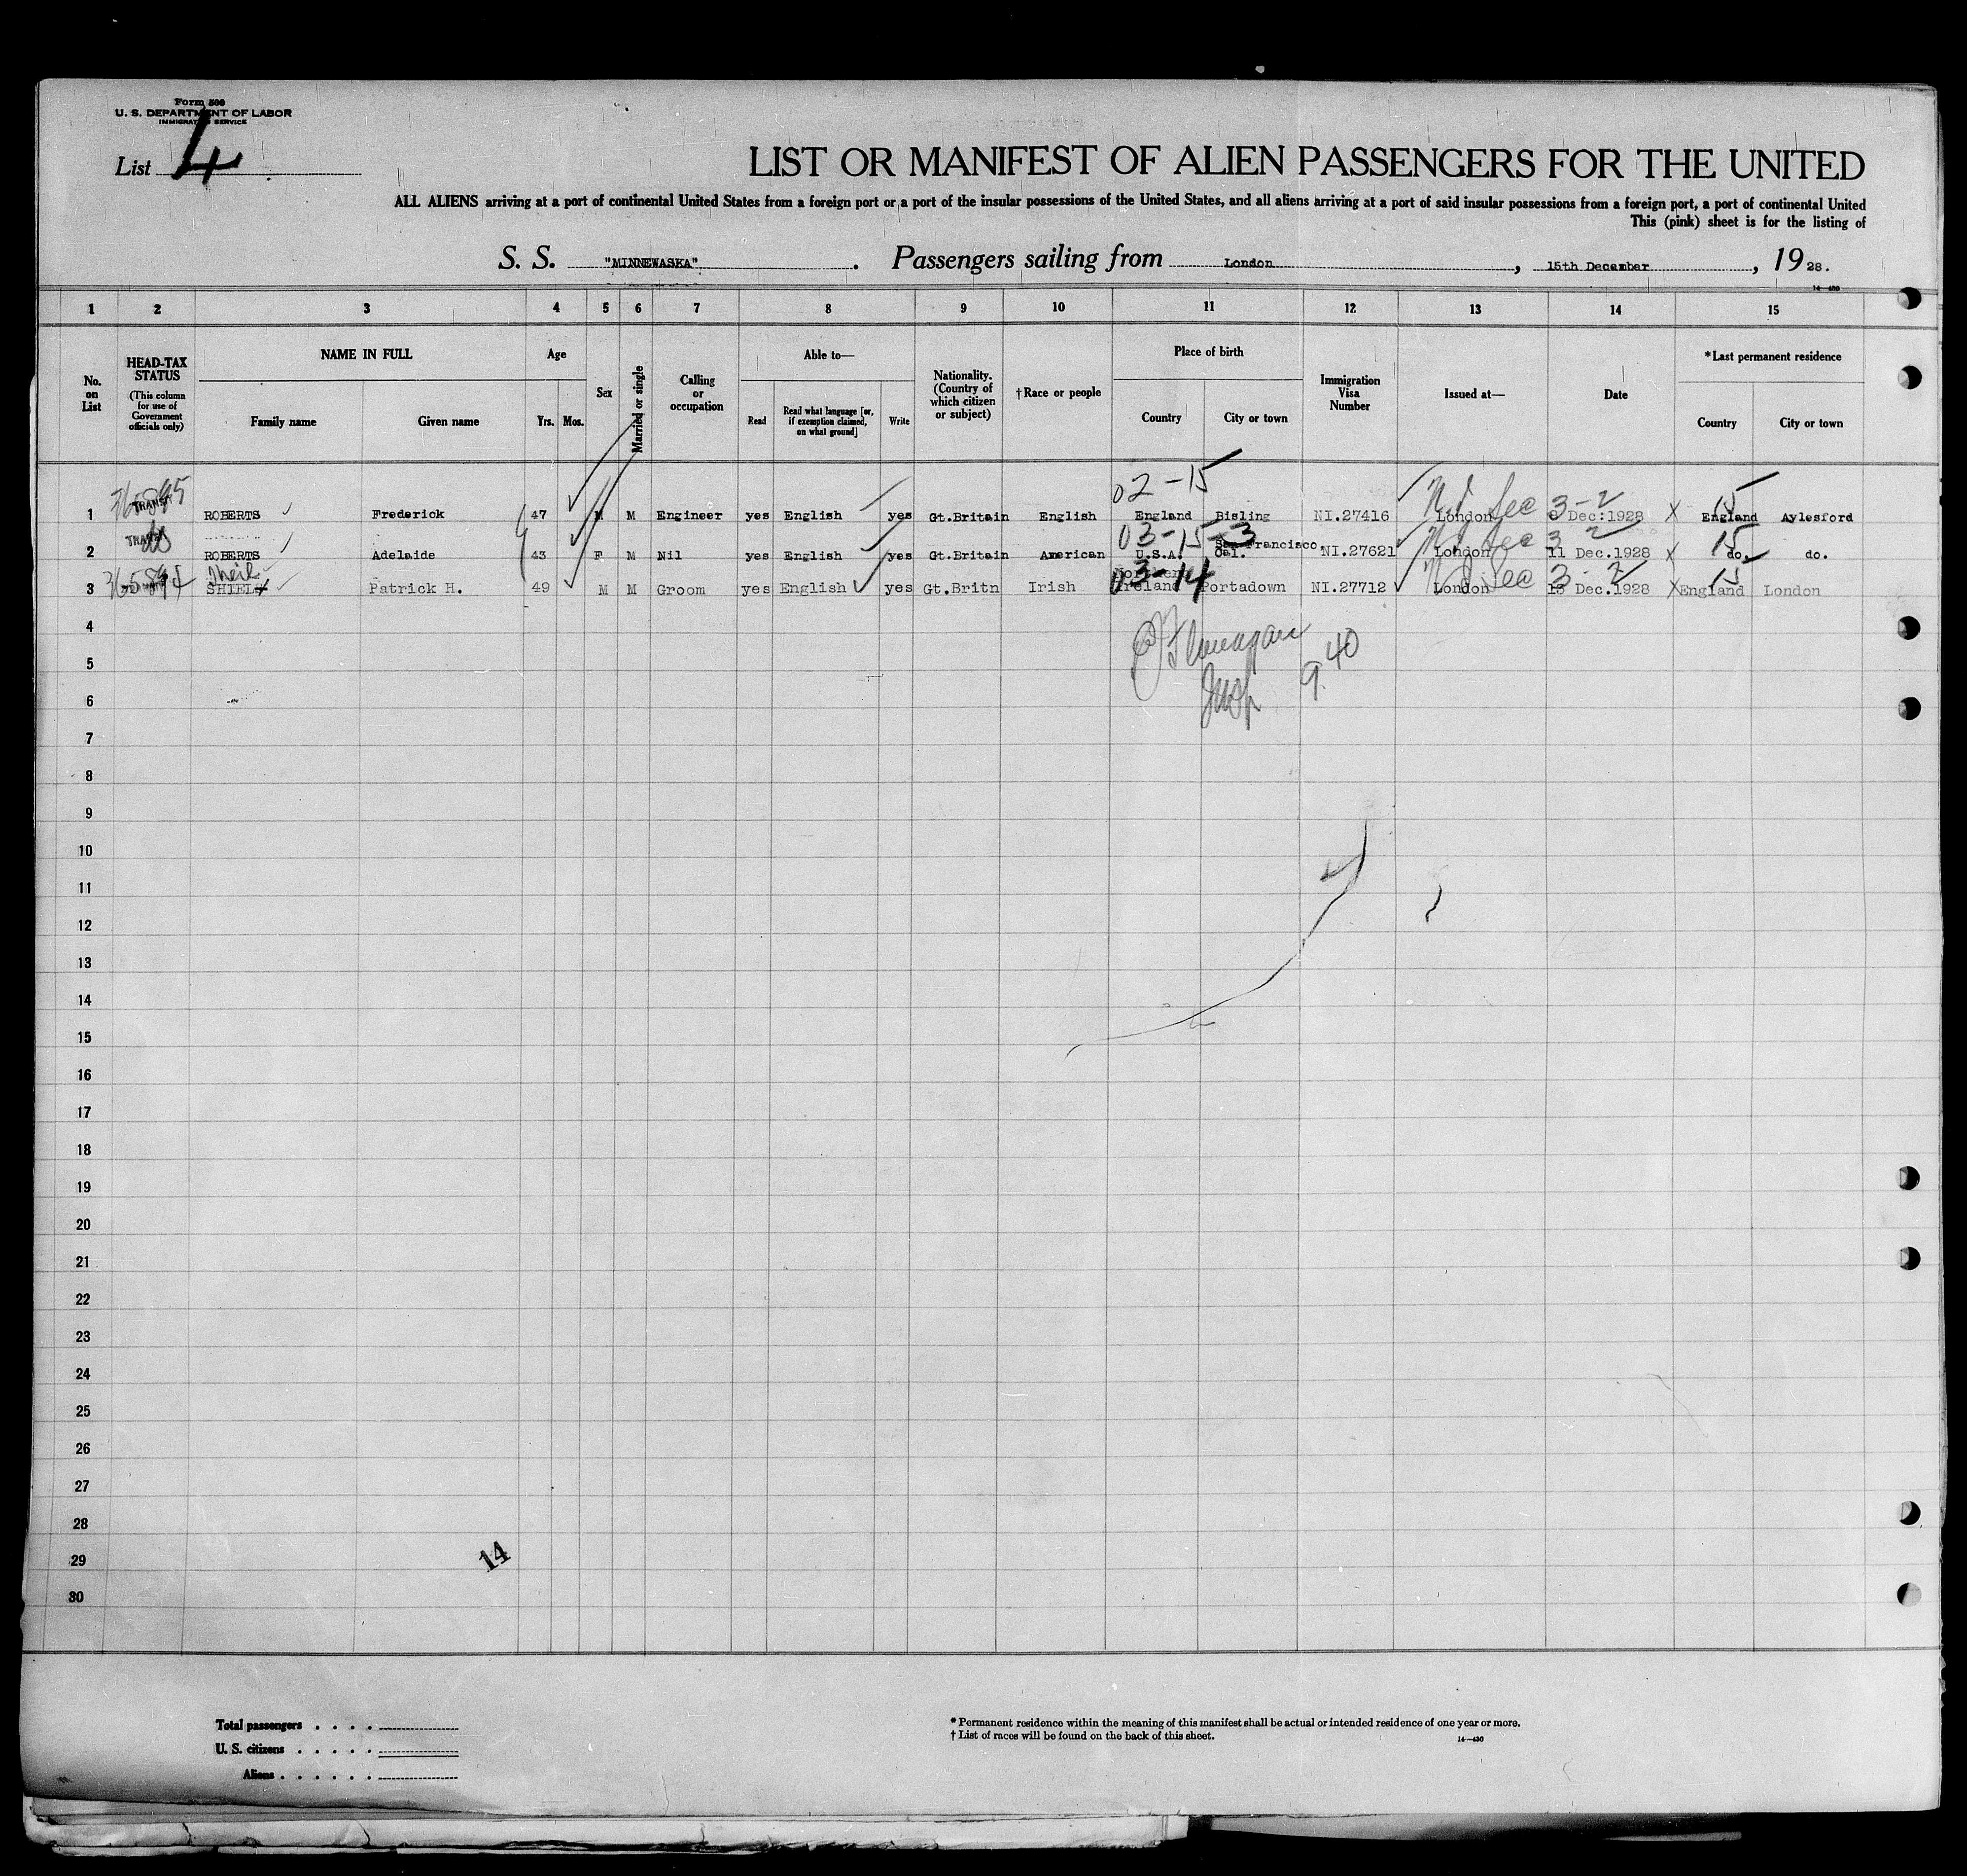 Form 500
U. S. DEPARTMENT OF LABOR
IMMIGRATION SERVICE
List 4
LIST OR MANIFEST OF ALIEN PASSENGERS FOR THE UNITED
ALL ALIENS arriving at a port of continental United States from a foreign port or a port of the insular possessions of the United States, and all aliens arriving at a port of said insular possessions from a foreign port, a port of continental United
This (pink) sheet is for the listing of
S. S. "MINNEWASKA". Passengers sailing from London, 15th December, 1928.
14—430
1 2 3 4 5 6 7 8 9 10 11 12 13 14 15
No. on List
HEAD-TAX STATUS
(This column for use of Government officials only)
NAME IN FULL
Family name Given name
Age
Yrs. Mos.
Sex
Married or single
Calling or occupation
Able to—
Read Read what language [or, if exemption claimed, on what ground] Write
Nationality. (Country of which citizen or subject)
†Race or people
Place of birth
Country City or town
Immigration Visa Number
Issued at—
Date
*Last permanent residence
Country City or town
02-15
1 TRANSIT ROBERTS Frederick 47 M M Engineer yes English yes Gt.Britain English England Bisling NI.27416 London Dec:1928 X England Aylesford
15
03-15-3
2 TRANSIT ROBERTS Adelaide 43 F M Nil yes English yes Gt.Britain American U.S.A. San Francisco, Cal. NI.27621 London 11 Dec.1928 X do. do.
15
03-14
3 SHIEL Patrick H. 49 M M Groom yes English yes Gt.Britn Irish Northern Ireland Portadown NI.27712 London 13 Dec.1928 X England London
15
4
5
Insp 9.40
6
7
8
9
10
11
12
13
14
15
16
17
18
19
20
21
22
23
24
25
26
27
28
29
14
30
Total passengers . . . .
U. S. citizens . . . . .
Aliens . . . . . .
* Permanent residence within the meaning of this manifest shall be actual or intended residence of one year or more.
† List of races will be found on the back of this sheet.
14—430